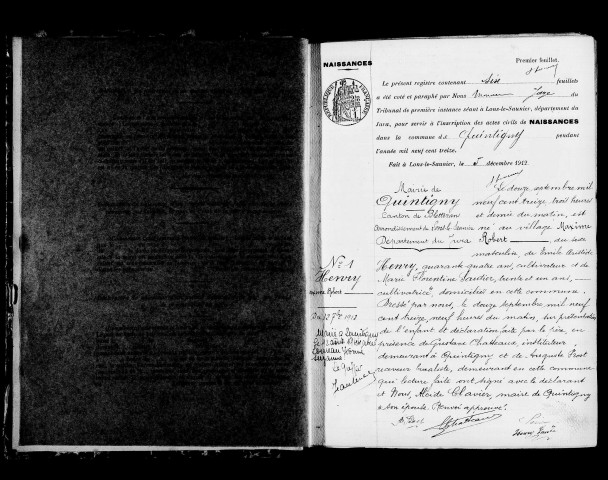 NAISSANCES
Premier feuillet.
Le présent registre contenant six feuillets
a été coté et paraphé par Nous Juge du
Tribunal de première instance séant à Lons-le-Saunier, département du
Jura, pour servir à l'inscription des actes civils de NAISSANCES
dans la commune de Quintigny pendant
l'année mil neuf cent treize.
Fait à Lons-le-Saunier, le 5 décembre 1912
NAISSANCES
Mairie de
Quintigny
Canton de Bletteran
Arrondissement de Lons-le-Saunier
Département du Jura
Le douze septembre mil
neuf cent treize, trois heures
et demie du matin, est
né au village Maxime
Robert du sexe
masculin, de Emile Aristide
Henry, quarante quatre ans, cultivateur et de
Marie Florentine Gautier, trente et un ans,
cultivatrice, domiciliés en cette commune.
Dressé par nous, le douze septembre mil neuf
cent treize, neuf heures du matin, sur présentation
de l'enfant et déclaration faite par le père, en
présence de Gustave Chatteaux, instituteur,
demeurant à Quintigny et de Auguste
receveur buraliste, demeurant en cette commune
qui lecture faite ont signé avec le déclarant
et Nous, Alcide Clavier, maire de Quintigny
Renvoi approuvé.
N° 1
Henry
Maxime Robert
Du 12 7bre 1913
Marié à Quintigny